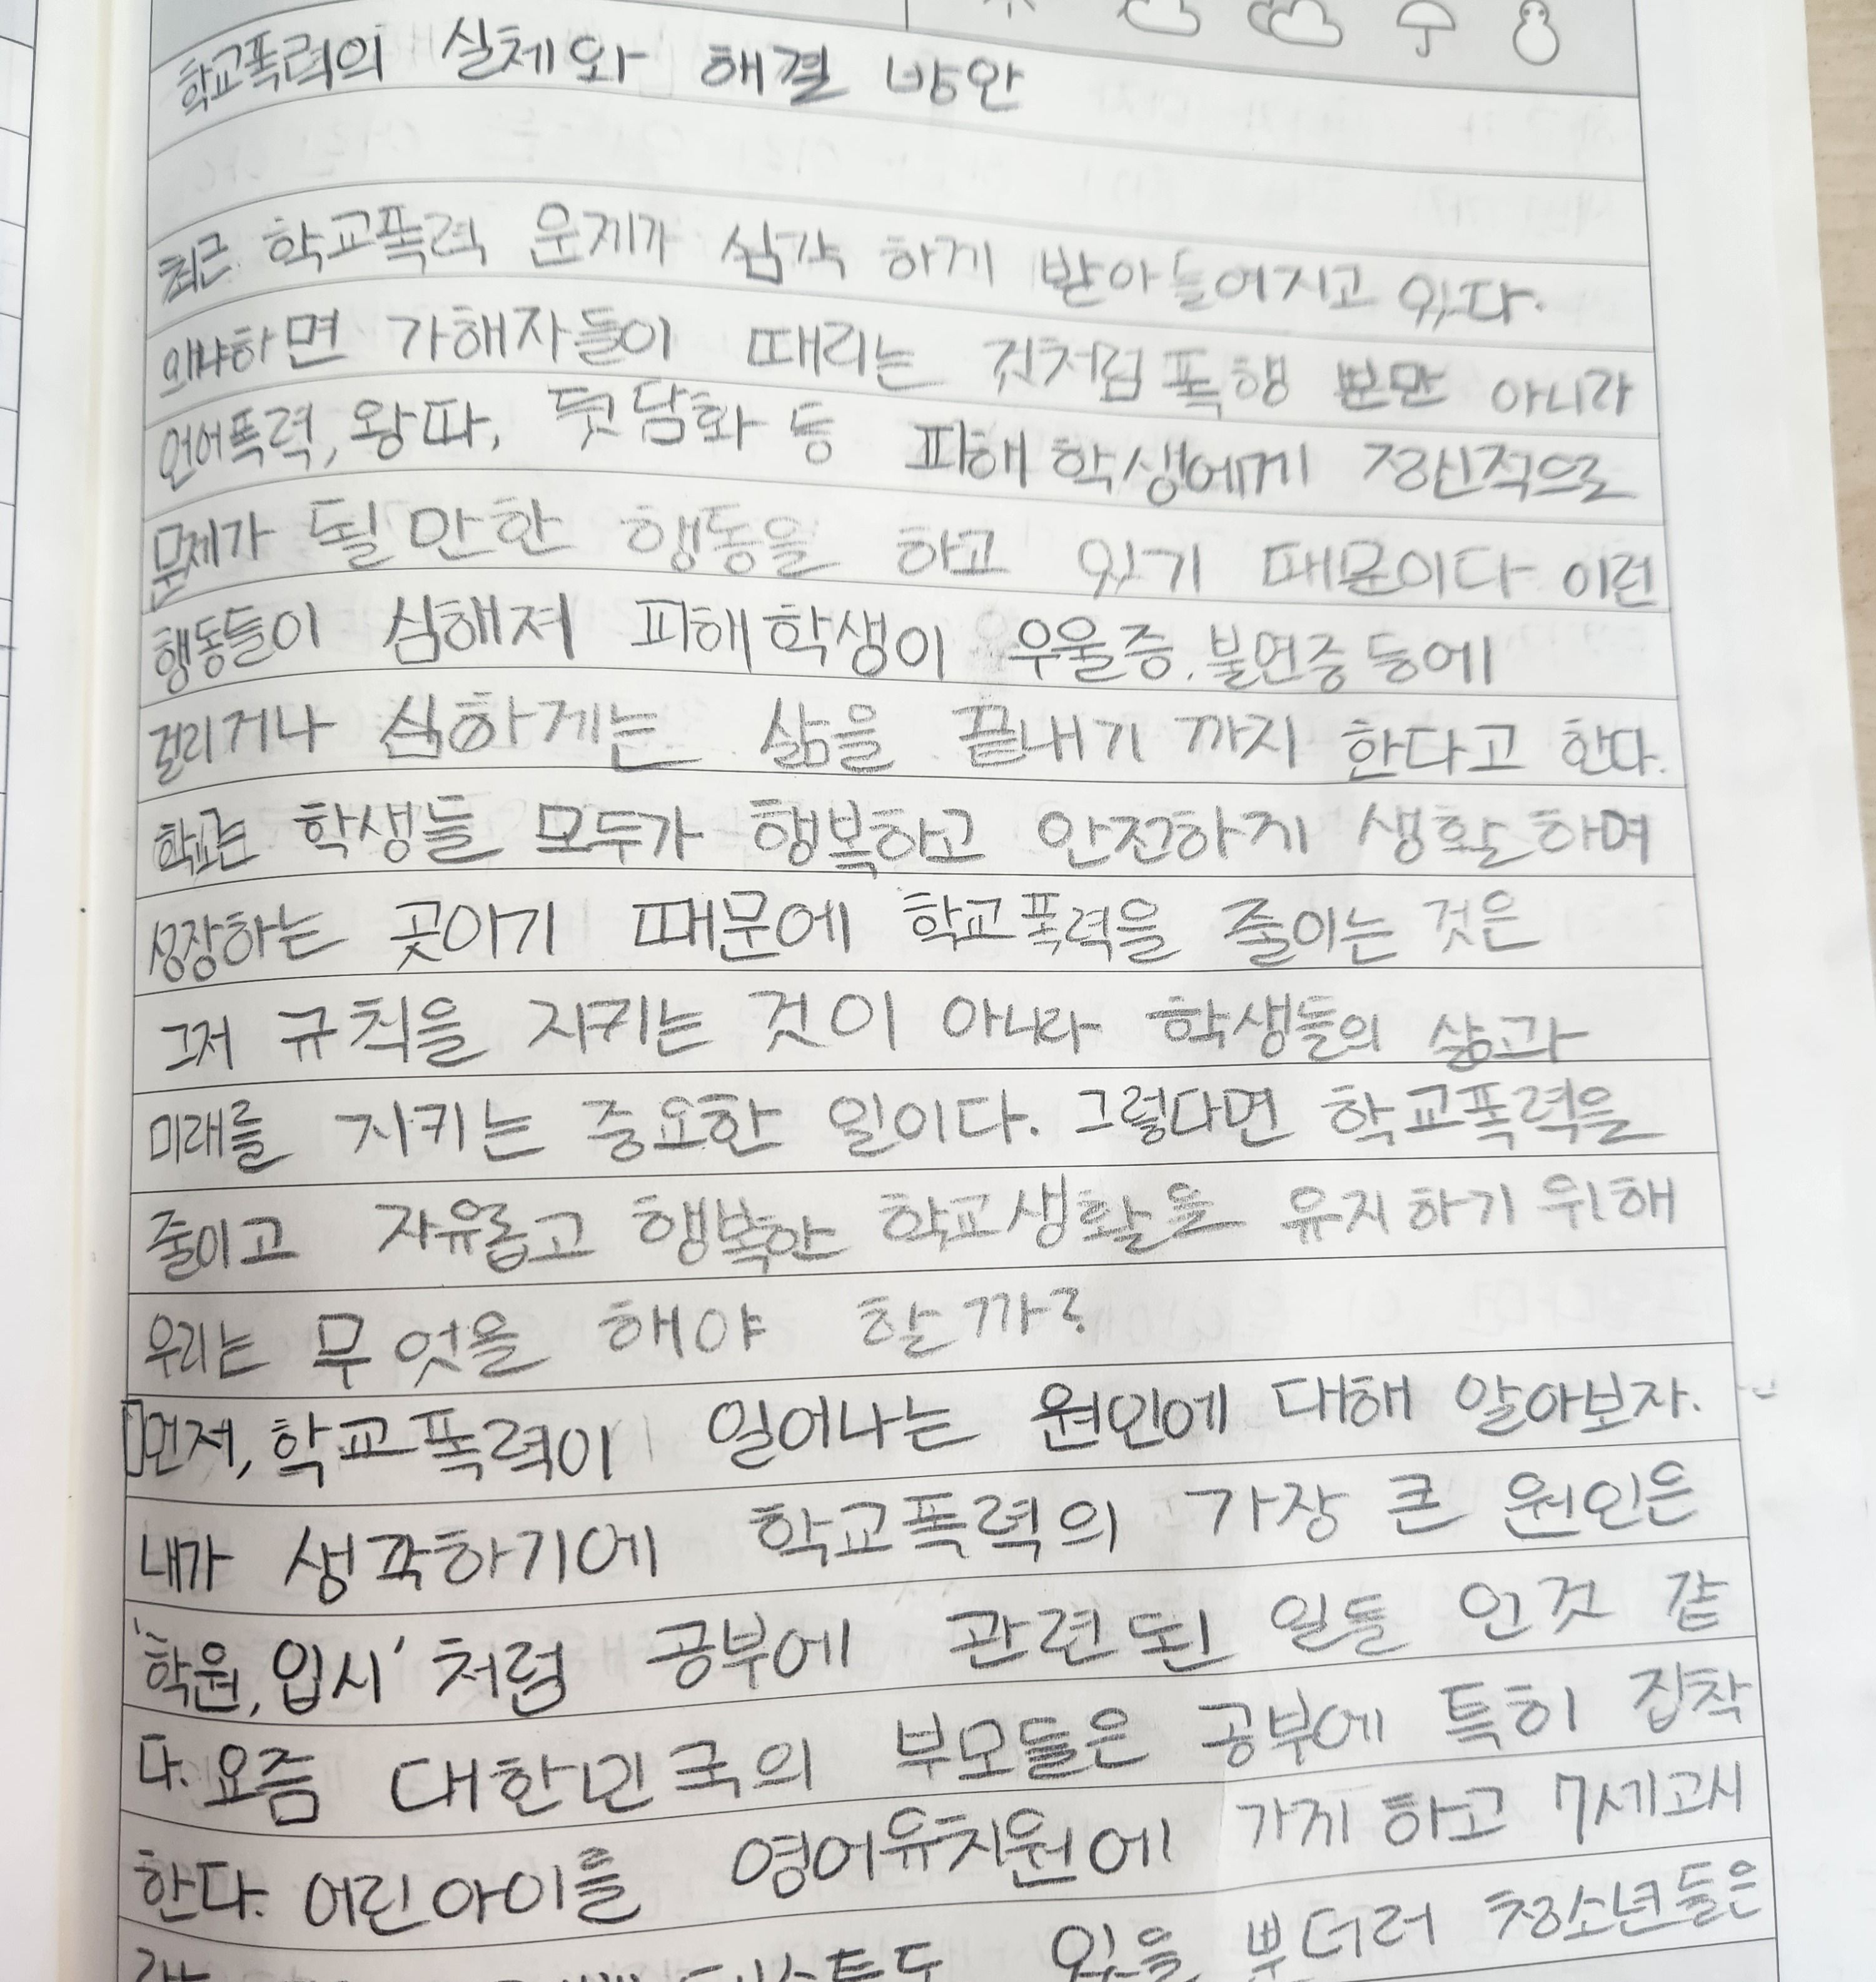 학교폭력의 실체와 해결 방안
최근 학교폭력 문제가 심각 하게 받아들여지고 있다.
왜냐하면 가해자들이 때리는 것처럼 폭행 뿐만 아니라
언어폭력, 왕따, 뒷담화 등 피해 학생에게 정신적으로
문제가 될 만한 행동을 하고 있기 때문이다 이런
행동들이 심해져 피해학생이 우울증, 불면증 등에
걸리거나 심하게는 삶을 끝내기 까지 한다고 한다.
학교는 학생들 모두가 행복하고 안전하게 생활하며
성장하는 곳이기 때문에 학교폭력을 줄이는 것은
그저 규칙을 지키는 것이 아니라 학생들의 삶과
미래를 지키는 중요한 일이다. 그렇다면 학교폭력을
줄이고 자유롭고 행복한 학교생활을 유지하기 위해
우리는 무엇을 해야 할까?
먼저, 학교폭력이 일어나는 원인에 대해 알아보자.
내가 생각하기에 학교폭력의 가장 큰 원인은
'학원, 입시' 처럼 공부에 관련된 일들 인것 같
다. 요즘 대한민국의 부모들은 공부에 특히 집착
한다. 어린아이를 영어유치원에 가게 하고 7세고시
있을 뿐더러 청소년들은